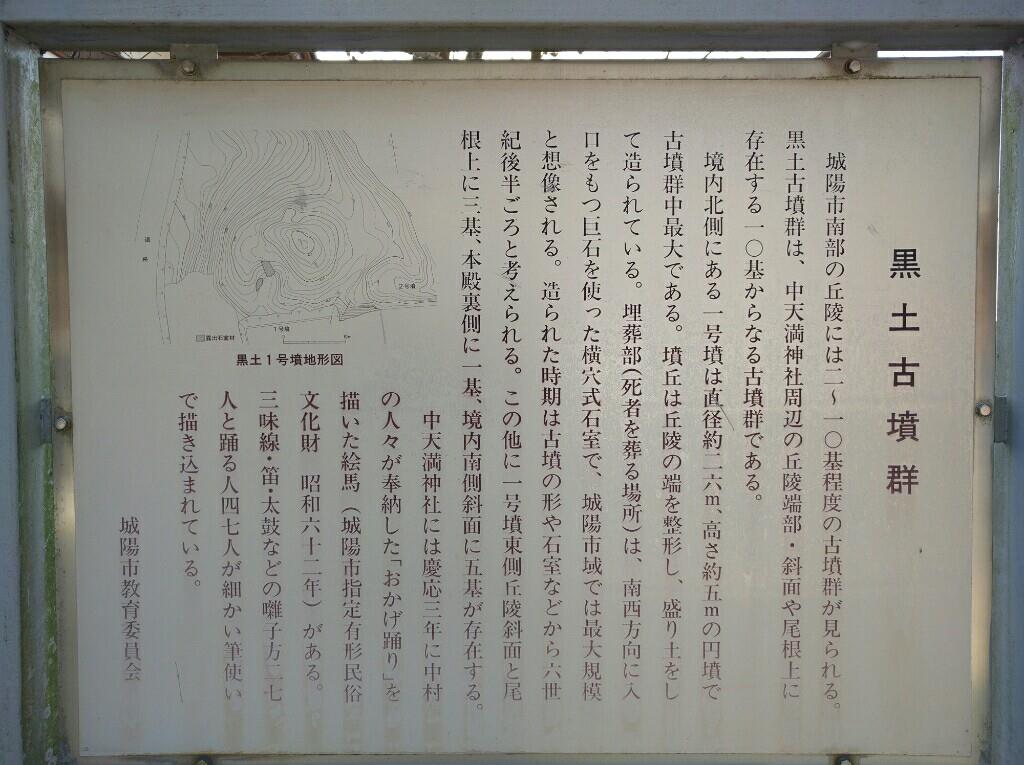 黒土古墳群
城陽市南部の丘陵には二～一〇基程度の古墳群が見られる。
黒土古墳群は、中天満神社周辺の丘陵端部・斜面や尾根上に
存在する一〇基からなる古墳群である。
境内北側にある一号墳は直径約二六m、高さ約五mの円墳で
古墳群中最大である。墳丘は丘陵の端を整形し、盛り土をし
て造られている。埋葬部(死者を葬る場所)は、南西方向に入
口をもつ巨石を使った横穴式石室で、城陽市域では最大規模
と想像される。造られた時期は古墳の形や石室などから六世
紀後半ごろと考えられる。この他に一号墳東側丘陵斜面と尾
根上に三基、本殿裏側に一基、境内南側斜面に五基が存在する。
中天満神社には慶応三年に中村
の人々が奉納した「おかげ踊り」を
描いた絵馬（城陽市指定有形民俗
文化財　昭和六十二年）がある。
三味線・笛・太鼓などの囃子方二七
人と踊る人四七人が細かい筆使い
で描き込まれている。
城陽市教育委員会
道路
2号墳
1号墳
露出石室材
黒土1号墳地形図